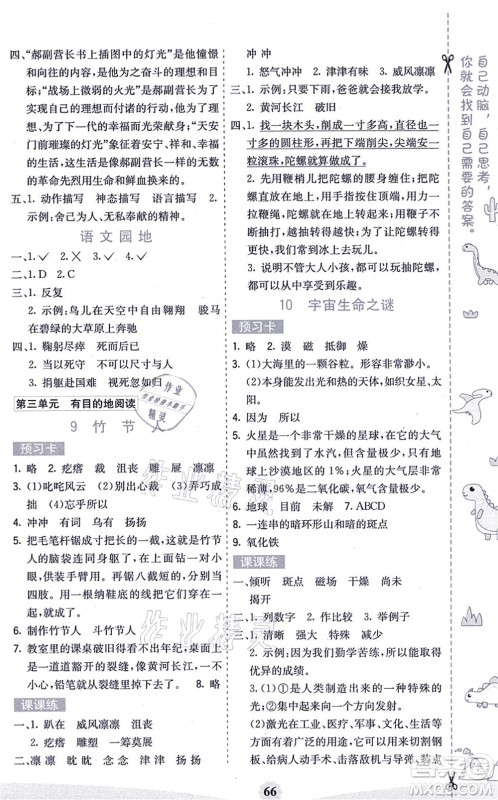 四、“郝副营长书上插图中的灯光”是他憧憬
和向往的内容，是他为之奋斗的理想和目
标;“战场上微弱的火光”是郝副营长为了
实现了自己的理想，让孩子们能在灯光下学
习，为了下一代的幸福而光荣献身;“天安
门前璀璨的灯光”象征着安宁、祥和、幸福
的生活。这幸福生活是郝副营长这样无数
的革命先烈用生命和鲜血换来的。
五、1. 动作描写　神态描写　语言描写
2. 示例:舍己为人、无私奉献的精神。
语文园地
一、1. ✓　2. ✓　3. ✓
二、1. D　2. C
三、1. 反复
2. 示例:鸟儿在天空中自由翱翔　骏马
在碧绿的大草原上奔驰
四、1. 鞠躬尽瘁　死而后已
2. 当以死守　不可以死争
3. 捐躯赴国难　视死忽如归
第三单元　有目的地阅读
9 竹节人
预习卡
1. 略　2. 疙瘩　裁　沮丧　雕　屉　凛凛
3. (1)叱咤风云　(2)别出心裁　(3)弄巧成
拙　(4)忘乎所以
4. 冲冲　威风　词　有　乌　扬扬
5. 把毛笔杆锯成寸把长的一截，这就是竹节
人的脑袋连同身躯了，在上面钻一对小眼，
供装手臂用。再锯八截短的，当四肢。
用一根纳鞋底的线穿在一起，就成了。
6. 制作竹节人　斗竹节人
7. 教室里的课桌破旧得看不出年纪，桌面上
是一道道豁开的裂缝，像黄河长江，一不
小心，铅笔就从裂缝里掉下去了。　8. 略
课课练
一、1. 趴在　威风凛凛　沮丧
2. 疙瘩　雕塑　一筹莫展
二、1. 凛凛　眈眈　念念　津津　扬扬
冲冲
1. 怒气冲冲　2. 津津有味　3. 威风凛凛
三、1. 示例:只要下雨，爸爸就会接我放学。
2. 黄河长江　破旧
四、1. 找一块木头，削成一寸多高，直径也一
寸多的圆柱形，再把下端削尖，尖端安一
粒滚珠，陀螺就成功了。
2. 先用鞭梢儿把陀螺的腰身缠住，把陀
螺直立于地，用手扶好，然后猛拉
鞭绳，陀螺就旋转起来了。再用鞭子不
断抽打，越抽打转得越快，陀螺就不停
地旋转。
3. 说明了不管大人小孩，都喜欢打陀螺，
都能感受到打陀螺过程中享受到乐趣。
10　宇宙生命之谜
预习卡
1. 略　2. 漠　磁　抵御　燥
3. (1)大海里的一颗谷粒。形象地写出了
地球在宇宙中的渺小。　(2)本身能发光的
天体，如太阳。　光和热　存在
4. 因为　所以
5. 火星是一个非常干燥的星球，在它的大气
中虽然找到了水汽，但含量极少，只有
地球上沙漠地区的1%。火星的大气非常
稀薄，96%是二氧化碳，氧气含量极少。
6. 地球　目前　未解　7. ABCD
8. 一连串的暗环形山和暗的斑点
9. 氧化铁
课课练
一、倾听　斑点　磁场　干燥　尚未
揭开
二、1. 列数字　2. 作比较　3. 举例子
三、1. 清晰　增强　灵敏　扩大
2. 示例:因为我们勤学苦练，所以能取得
优异的成绩。
四、1. (1)①是人类制造出来的一种特殊的
光;②集中朝一个方向射出去的光。
(2)激光在工业、医疗、军事、文化、通
信等方面，有着广泛的应用，如动手术
给病人动手术、击落敌机与导弹、装点
66
自己动脑，自己思考，
你就会找到自己需要的答案。
作业精灵
答案圈
MXQE.COM